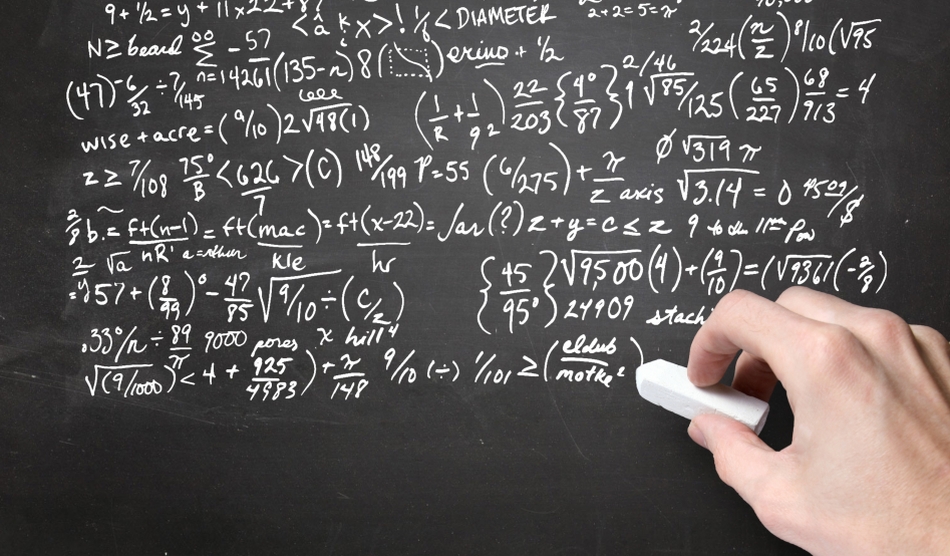 9 + 1/2 = y + 11 x 22 + 8?
< â k x > ! 1/6 < DIAMETER
2+2=5=π
N ≥ beard ∞ Σ n=14261 -57 (135-n) 8 ( ) erino + 1/2
2/224 (n/z) 8/10 (√95
(47)^-6/32 ÷ 7/145
(1/R + 1/9²) 22/203 {4°/87} 9 2/46 √85/125 (65/227) 68/913 = 4
wise + acre = (9/10) 2 √48(1)
z ≥ 7/108 75°/B < 626/7 > (C) 148/199 P = 55 (6/275) + π/z axis
∅ √319 π
√3.14 = 0
2/8 b. = ft(n-1)/nR' = ft(mac)/kle = ft(x-22)/hr = (?) z + y = c ≤ z 9 to the 11th Pow
2 √a
= y 57 + (8/99)° - 47/85 √9/10 ÷ (c/z)
{45/95°} √9500 (4) + (9/10) = (√9361 (-2/8)
24909 stach
.33°/n ÷ 89/π 9000 pores x hill 4
√(9/1000) < 4 + 925/4983 ) + π/148 9/10 (÷) 1/101 ≥ (eldub/motke²)